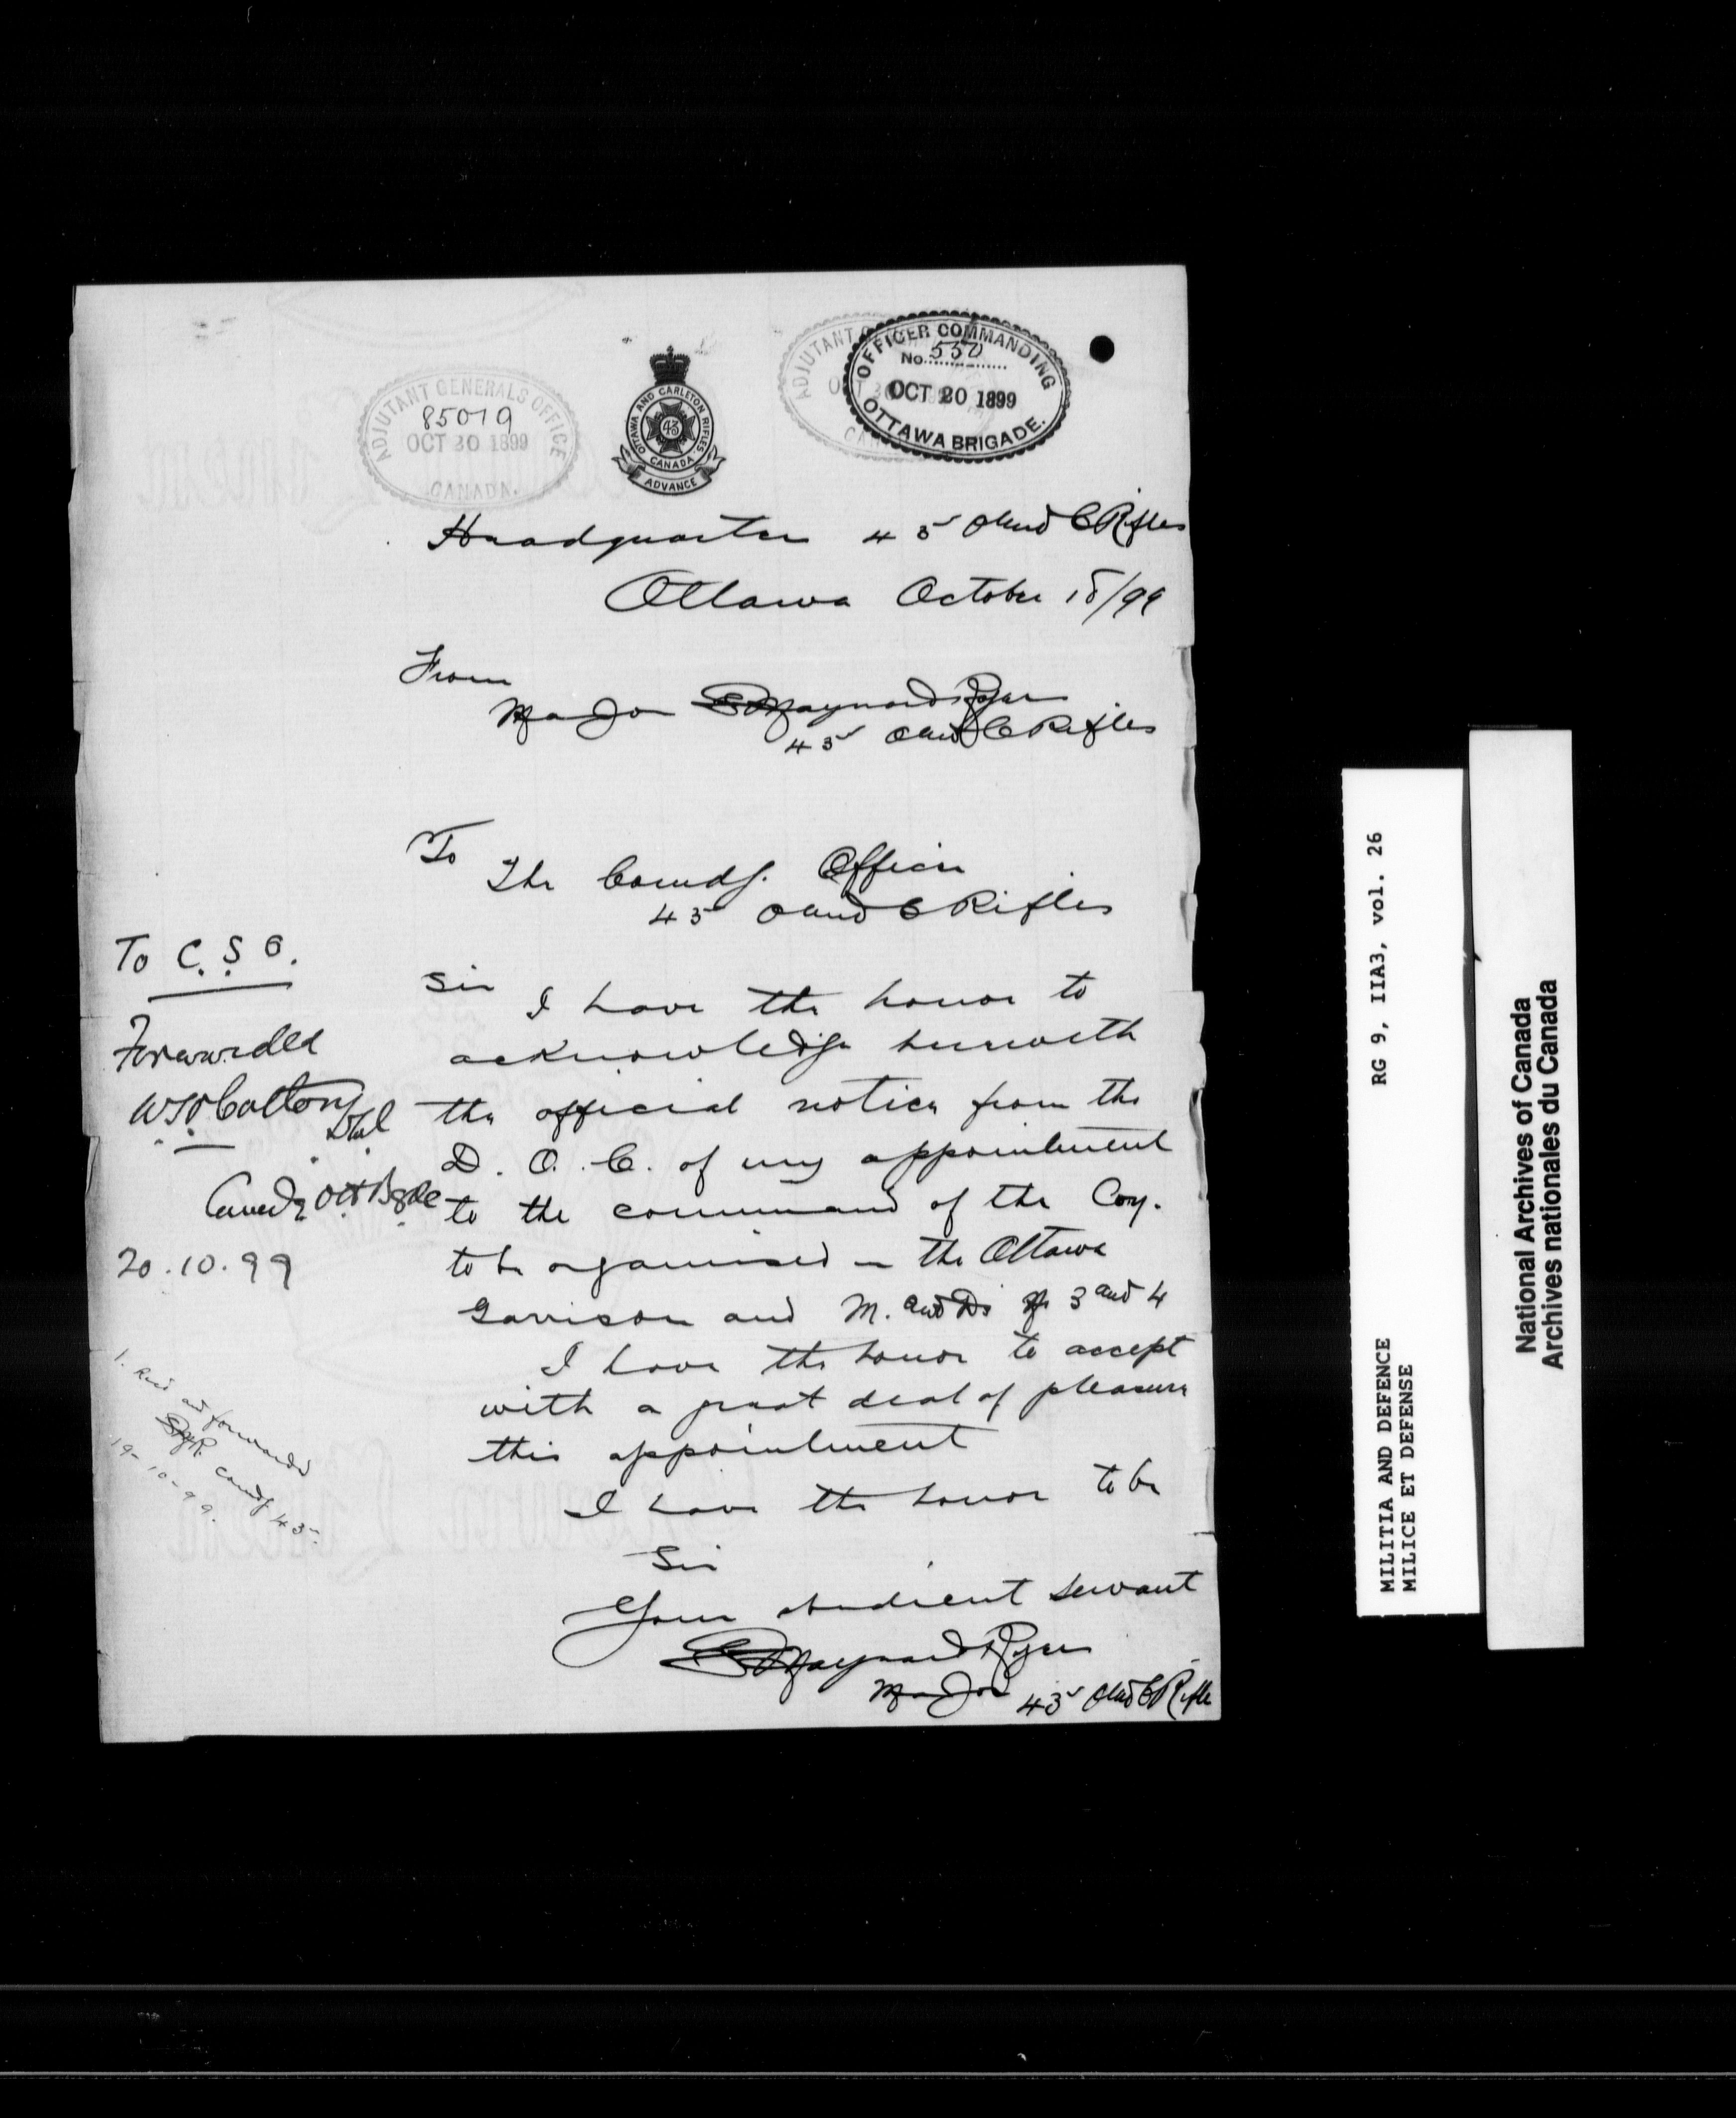 ADJUTANT GENERALS OFFICE
85019
OCT 20 1899
CANADA.
OTTAWA AND CARLETON RIFLES
43
CANADA
ADVANCE
ADJUTANT
OFFICER COMMANDING
No. 550
OCT 20 1899
OTTAWA BRIGADE.
Headquarters 43 O and C Rifles
Ottawa October 18/99
From
Major S Maynard Rogers
43 O and C Rifles
To
The Comdg. Officer
43 O and C Rifles
Sir
I have the honor to
acknowledge herewith
the official notice from the
D. O. C. of my appointment
to the command of the Coy.
to be organised in the Ottawa
Garrison and M. and Ds 3 and 4
I have the honor to accept
with a great deal of pleasure
this appointment
I have the honor to be
Sir
Your obedient servant
S Maynard Rogers
Major 43 O and C Rifles
To C. S. O.
Forwarded
Cotton
Comdg Ott Bgde
20.10.99
1. Recd
and forwarded
Comdg 43
19-10-99.
RG 9, IIA3, vol. 26
MILITIA AND DEFENCE
MILICE ET DEFENSE
National Archives of Canada
Archives nationales du Canada